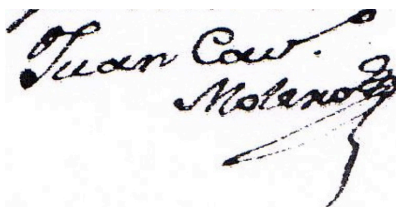 Juan Cav.
Molero